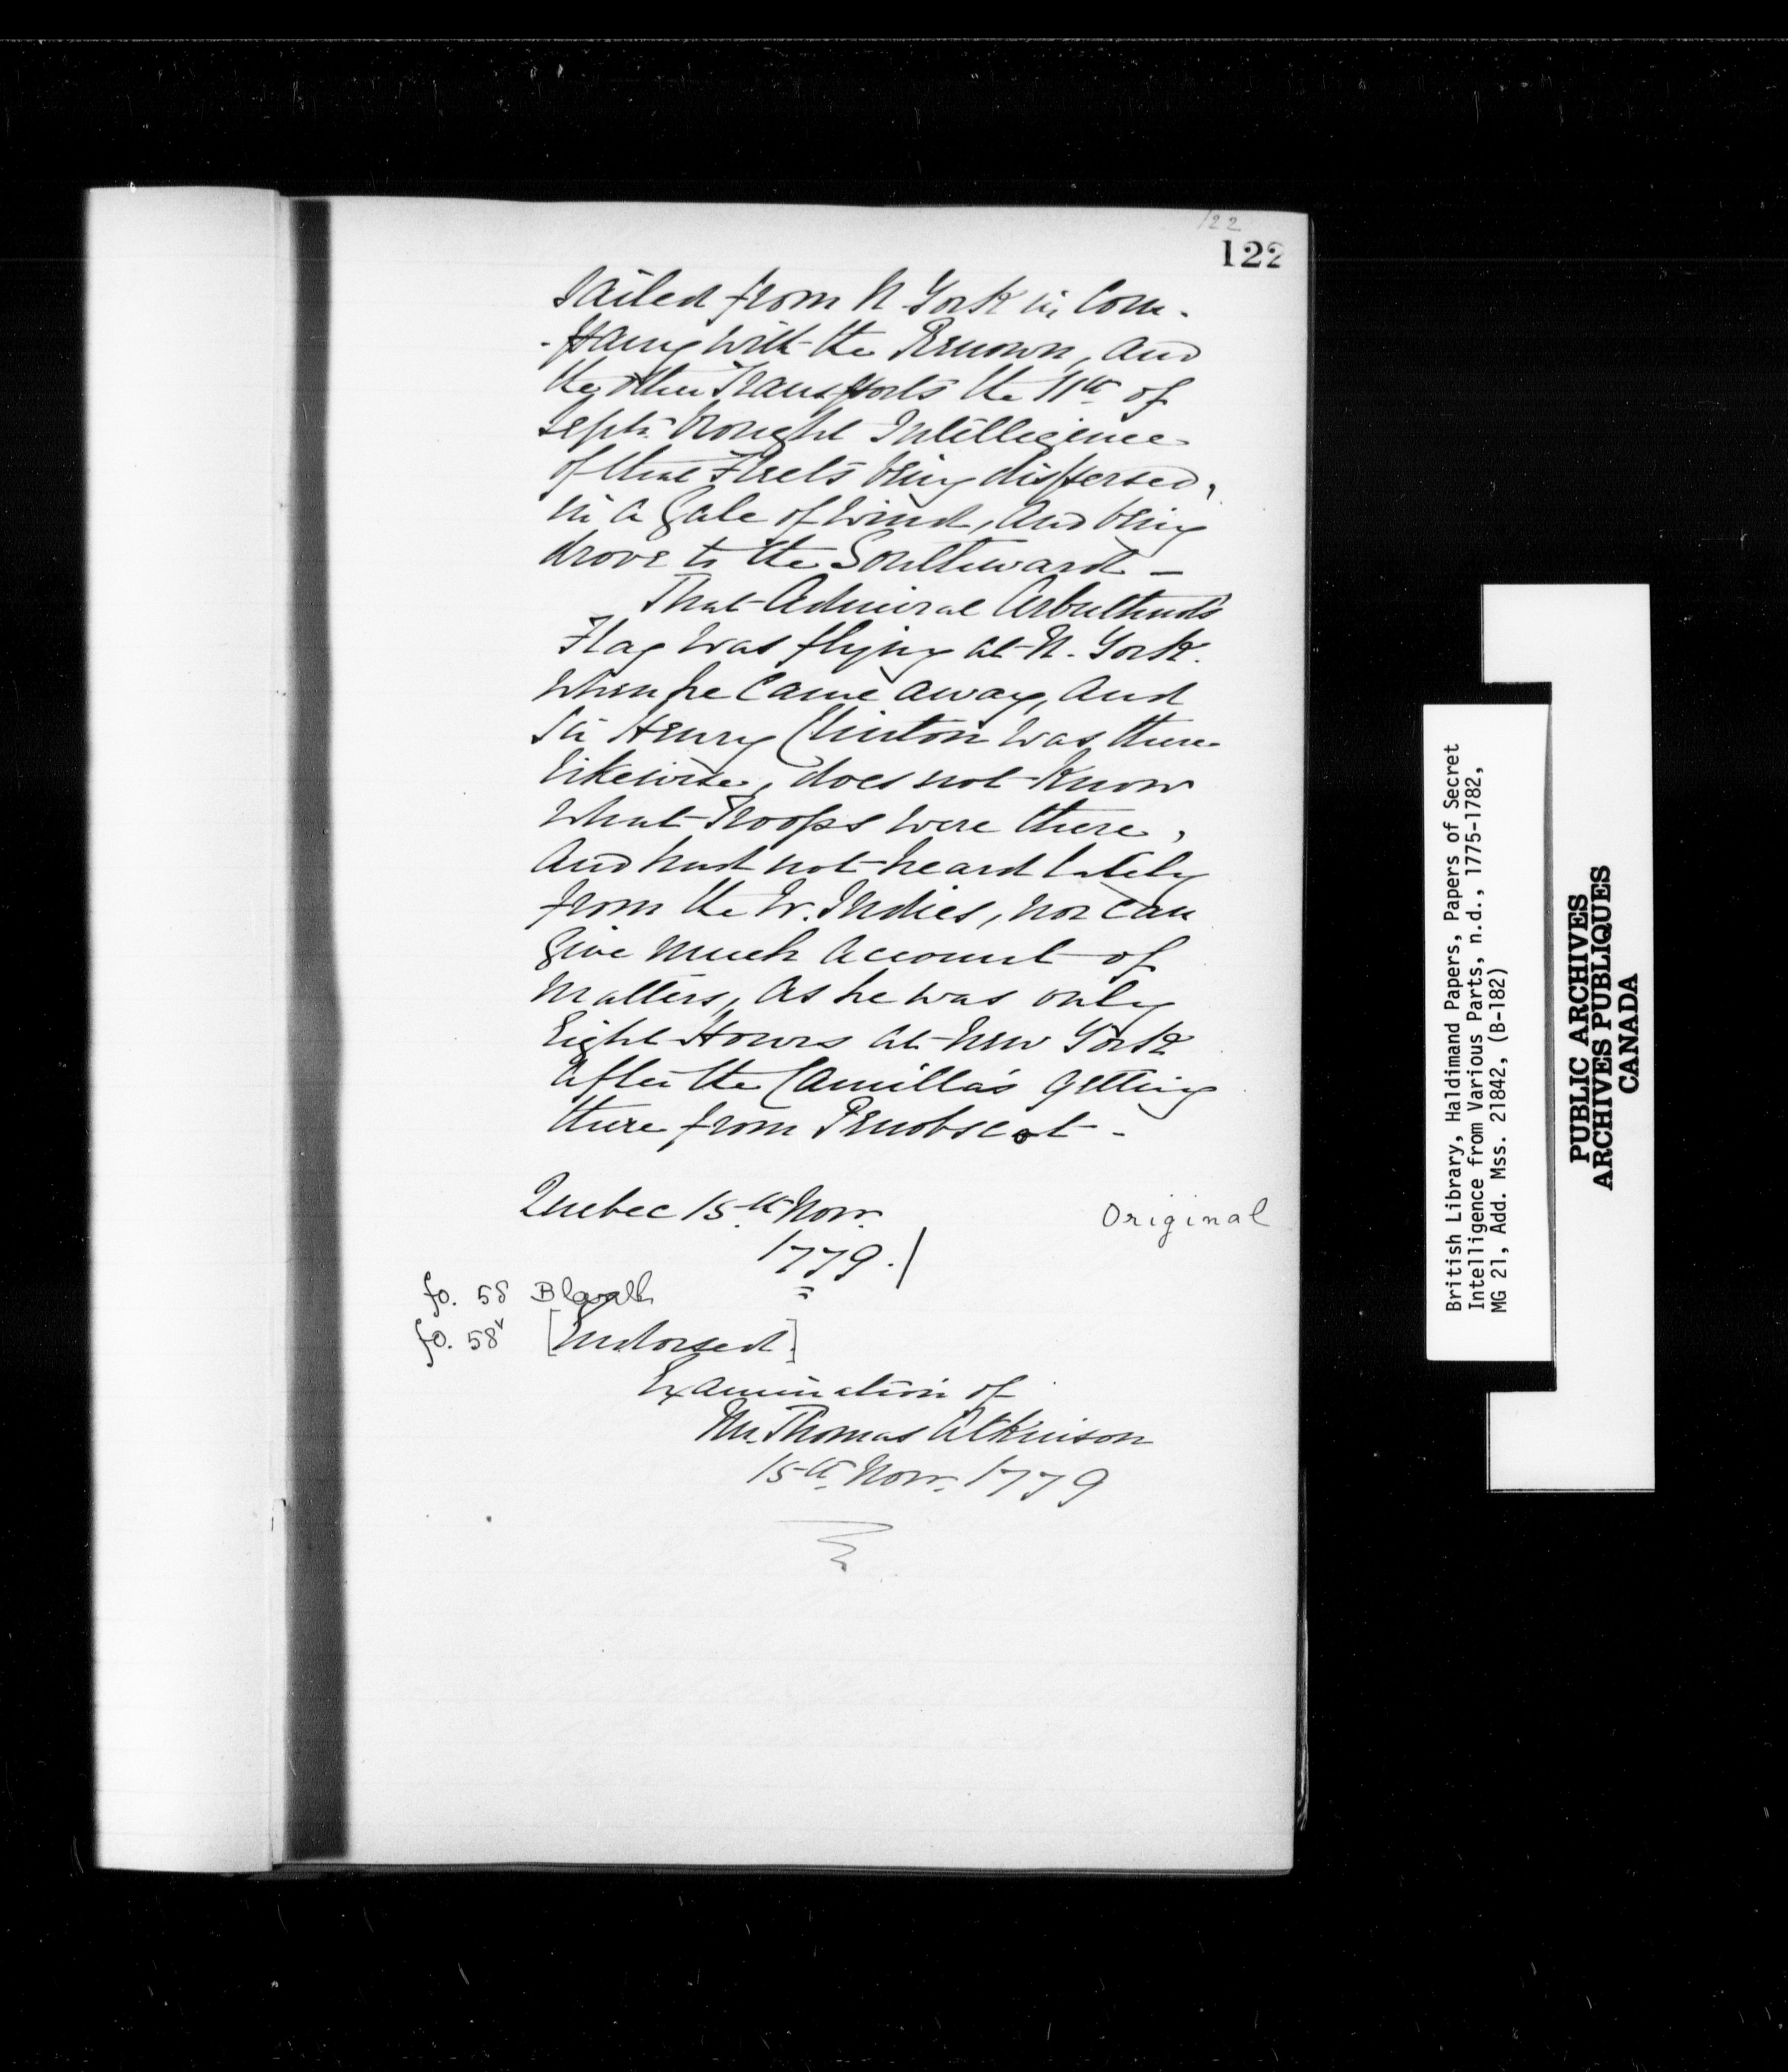 122
122
Sailed from N York in Com-
-pany with the Renown, and
the other Transports the 11th of
Septr. brought Intelligence
of that Fleets being dispersed,
in a Gale of Wind, and being
drove to the Southward —
That Admiral Arbuthnots
Flag was flying at N. York.
when he came away, and
Sir Henry Clinton was there
likewise, does not know
what Troops were there,
and had not heard lately
from the W. Indies, nor can
give much account of
matters, as he was only
Eight Hours at New York
after the Camilla's getting
there from Penobscot -
Quebec 15th Novr.
1779.
Original
fo. 58 Blank
fo. 58v [Endorsed]
Examination of
Mr. Thomas Atkinson
15th Novr. 1779
British Library, Haldimand Papers, Papers of Secret
Intelligence from Various Parts, n.d., 1775-1782,
MG 21, Add. Mss. 21842, (B-182)
PUBLIC ARCHIVES
ARCHIVES PUBLIQUES
CANADA